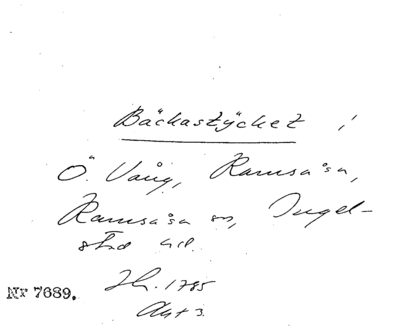 Bäckastÿcket i
Ö. Vång, Ramsåsa,
Ramsåsa sn, Ingel-
stad hd.
Nr 7689.
1785
Akt 3.